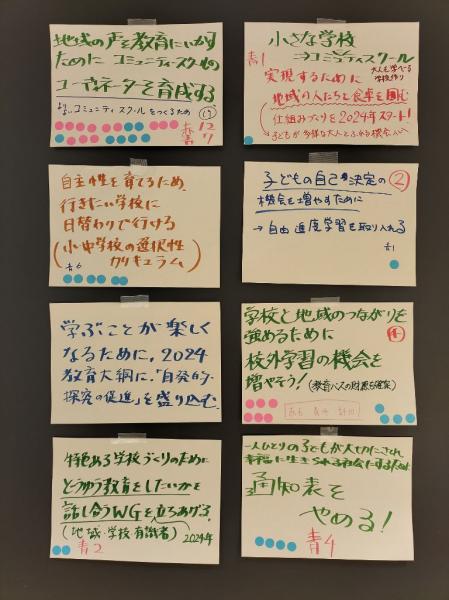 地域の声を教育にいかす
ために コミュニティスクールの
コーディネーターを育成する
よりよいコミュニティスクールをつくるため
12
7
小さな学校
→コミュニティスクール
大人も学べる
学校作り
青1
実現するために
地域の人たちと食卓を囲む
仕組みづくりを2024年スタート!
→子どもが多様な大人とふれる機会
自主性を育てるため、
行きたい学校に
日替わりで行ける
(小中学校の選択性
カリキュラム)
青6
子どもの自己決定の
②
機会を増やすために
→自由進度学習を取り入れる
青1
学ぶことが楽しく
なるために、2024
教育大綱に、「自発的・
探究の促進」を盛り込む。
学校と地域のつながりを
強めるために
校外学習の機会を
増やそう!(教育への財源も確保)
特色ある学校づくりのために
どうゆう教育をしたいかを
話し合うWGを立ちあげる!
(地域・学校・有識者)
2024年
青2
一人ひとりの子どもが大切にされ
幸福に生きられる社会にするため
通知表を
やめる!
青4